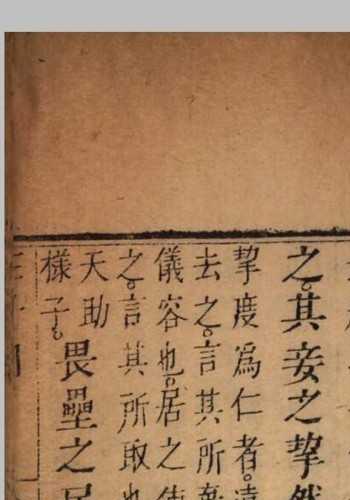 之。其妾之挈然
挈度為仁者。遠
去之。言其所
儀容也。居之
之。言其所取也
天助
樣子。
畏壘之